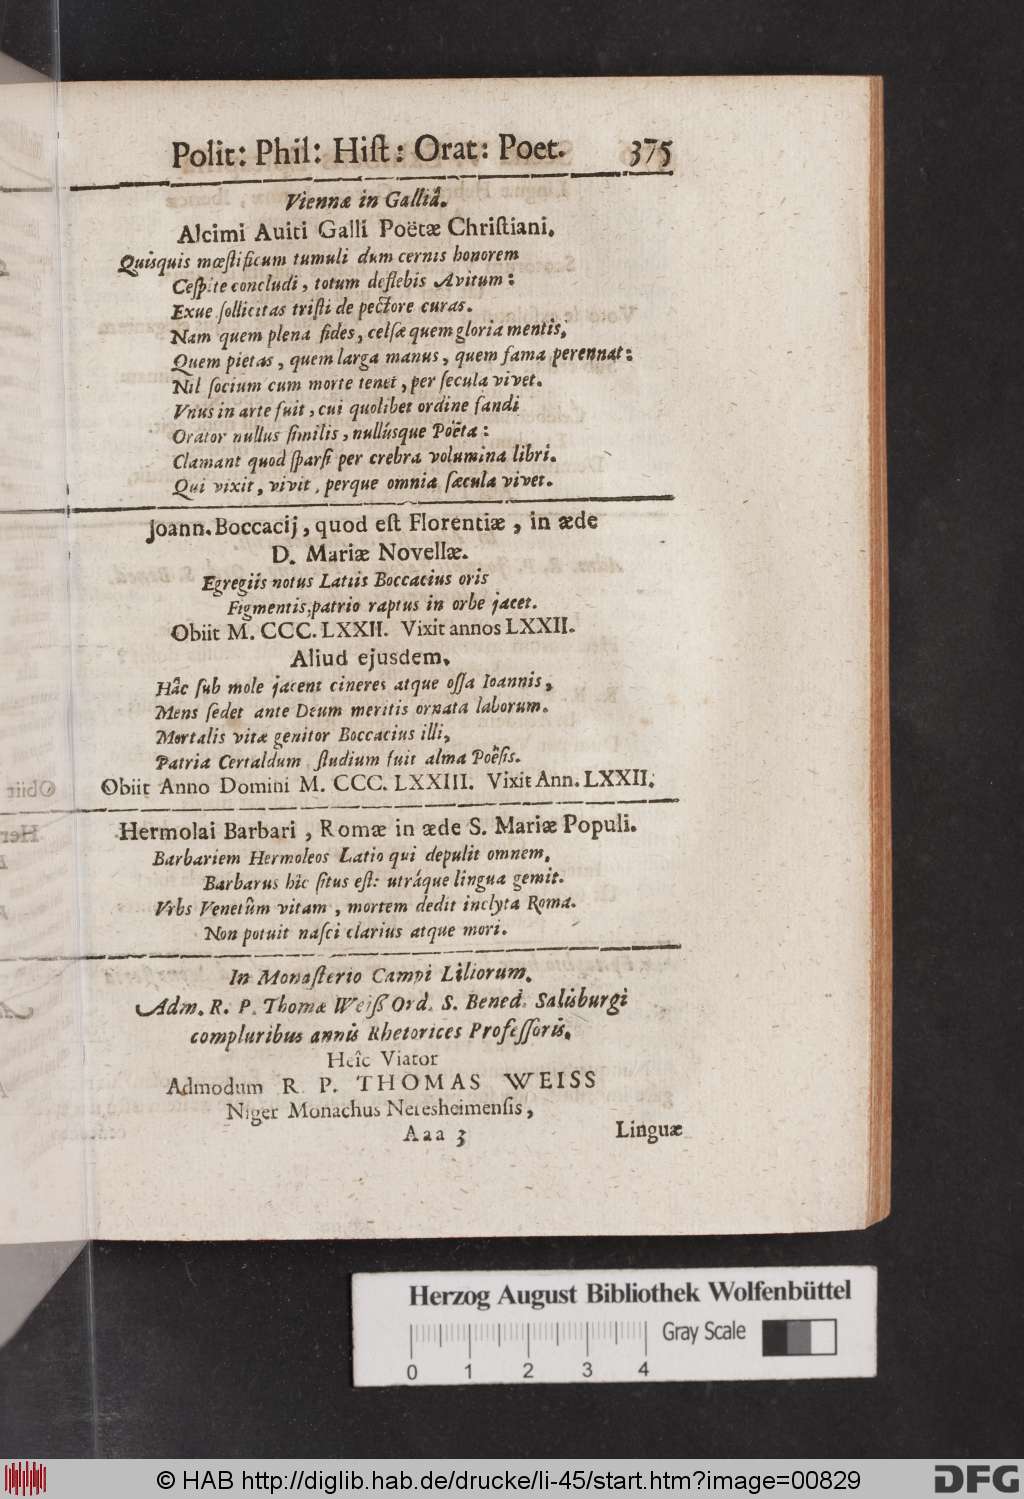 Polit: Phil: Hiſt: Orat: Poet. 375
Viennæ in Galliâ.
Alcimi Aviti Galli Poëtæ Chriſtiani.
Quisquis mœſtificum tumuli dum cernis honorem
Ceſpite concludi, totum deflebis Avitum:
Exue ſollicitas triſti de pectore curas.
Nam quem plena fides, celſæ quem gloria mentis,
Quem pietas, quem larga manus, quem fama perennat:
Nil ſocium cum morte tenet, per ſecula vivet.
Vnus in arte fuit, cui quolibet ordine fandi
Orator nullus ſimilis, nullúsque Poëta:
Clamant quod ſparſi per crebra volumina libri.
Qui vixit, vivit, perque omnia ſæcula vivet.
Joann. Boccacij, quod eſt Florentiæ, in æde
D. Mariæ Novellæ.
Egregiis notus Latiis Boccacius oris
Figmentis, patrio raptus in orbe jacet.
Obiit M. CCC. LXXII. Vixit annos LXXII.
Aliud ejusdem.
Hâc ſub mole jacent cineres atque oſſa Ioannis,
Mens ſedet ante Deum meritis ornata laborum.
Mortalis vitæ genitor Boccacius illi,
Patria Certaldum, ſtudium fuit alma Poëſis.
Obiit Anno Domini M. CCC. LXXIII. Vixit Ann. LXXII.
Hermolai Barbari, Romæ in æde S. Mariæ Populi.
Barbariem Hermoleos Latio qui depulit omnem,
Barbarus hîc ſitus eſt: utráque lingua gemit.
Vrbs Venetûm vitam, mortem dedit inclyta Roma.
Non potuit naſci clarius atque mori.
In Monaſterio Campi Liliorum.
Adm. R. P. Thomæ Weiß Ord. S. Bened. Salisburgi
compluribus annis Rhetorices Profeſſoris.
Heîc Viator
Admodum R. P. THOMAS WEISS
Niger Monachus Neresheimenſis,
Aaa 3 Linguæ
Obiit
Her
Herzog August Bibliothek Wolfenbüttel
Gray Scale
0 1 2 3 4
© HAB http://diglib.hab.de/drucke/li-45/start.htm?image=00829
DFG